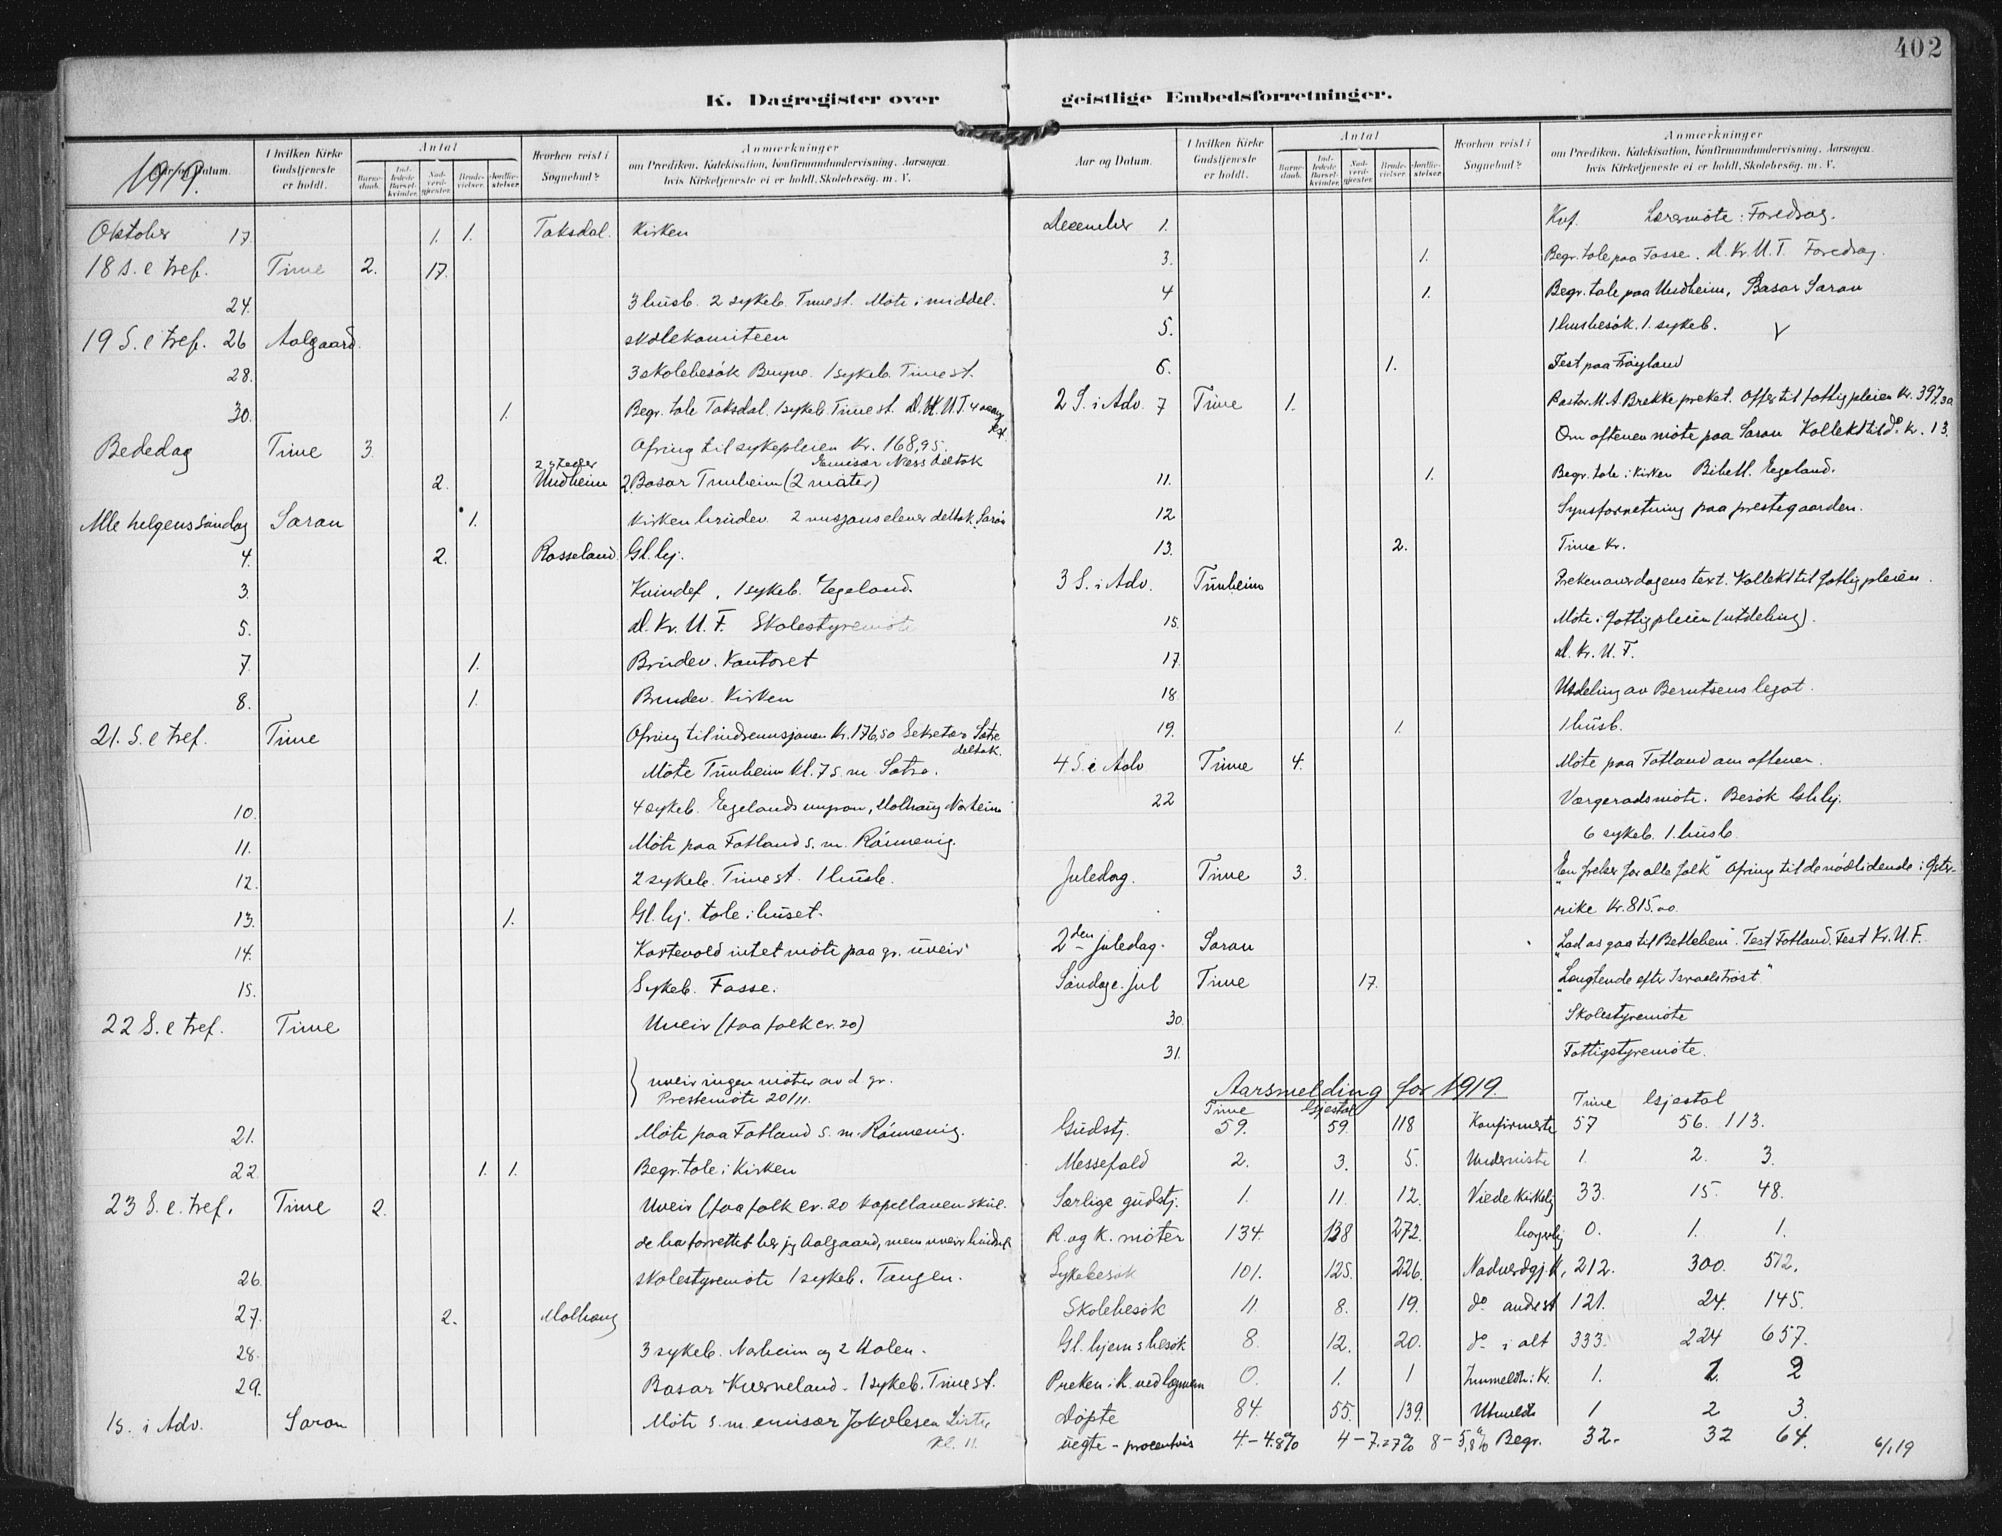 402
K. Dagregister over geistlige Embedsforretninger.
Aar og Datum. I hvilken Kirke Gudstjeneste er holdt. Antal Barnedaab. Indledede Barselkvinder. Nadverdgjester. Brudevielser. Jordfæstelser. Hvorhen reist i Sognebud? Anmærkninger om Prædiken, Katekisation, Konfirmandundervisning, Aarsagen hvis Kirketjeneste ei er holdt, Skolebesøg. m. V.
1919.
Oktober 17. 1. 1. Taksdal. Kirken
18 S. e tref. Time 2. 17.
24. 3 husb. 2 sykeb. Time st. Møte i middel.
19 S. e tref. 26 Aalgaard. skolekomiteen
28. 3 skolebesøk Bryne. 1 sykeb. Time st.
30. 1. Begr. tale Taksdal. 1 sykeb. Time st.
Bededag Time 3. Ofring til sykepleien Kr. 168,95.
2 steder Emisær Næss deltok
2. Undheim 2 Basar Tunheim (2 møter)
Alle helgens søndag Saron 1. Kirken brudev. 2 misjonselever deltok Saron
4. 2. Rosseland. Gl. hj.
3. Kvindef. 1 sykeb. Egeland.
5. D. Kr. U. F. Skolestyremøte
7. 1. Brudev. Kontoret
8. 1. Brudev. Kirken
21. S. e tref. Time Ofring til indremisjonen Kr. 176,50 Sekretær Sætre
deltok.
Møte Tunheim kl. 7 s. m. Sætre.
10. 4 sykeb. Egelandsmyran, Molhaug Norheim
11. Møte paa Fotland s. m.
12. 2 sykeb. Time st. 1 husb.
13. 1. Gl. hj. tale i huset.
14. Kartevold intet møte paa gr. uveir
15. Sykeb. Fosse.
22 S. e tref. Time Uveir (faa folk ca. 20)
uveir ingen møter av d gr.
Prestemøte 20/11.
21. Møte paa Fotland s. m.
22. 1. 1. Begr. tale i Kirken
23 S. e. tref. Time 2. Uveir (faa folk ca. 20 kapellanen skul-
de ha forrettet her jeg Aalgaard, men uveir hindret
26. Skolestyremøte 1 sykeb. Tangen.
27. 2. Molhaug
28. 3 sykeb. Norheim og 2 Holen.
29. Basar Kverneland. 1 sykeb. Time st.
1 S. i Adv. Saron Møte s. m. emisær Jakobsen Lista
kl. 11.
Aar og Datum. I hvilken Kirke Gudstjeneste er holdt. Antal Barnedaab. Indledede Barselkvinder. Nadverdgjester. Brudevielser. Jordfæstelser. Hvorhen reist i Sognebud? Anmærkninger om Prædiken, Katekisation, Konfirmandundervisning, Aarsagen hvis Kirketjeneste ei er holdt, Skolebesøg. m. V.
December 1. Kvf. Læremøte: Foredrag.
3. 1. Begr. tale paa Fosse. D. Kr. U. F. Foredrag.
4 1. Begr. tale paa Undheim, Basar Saron
5. 1 husbesøk. 1 sykeb.
6. 1. Fest paa Frøyland
2 S. i Adv. 7 Time 1. Pastor M. A. Brekke preket. Offer til fattigpleien Kr. 397,30
Om aftenen møte paa Saron Kollekt til do. kr. 13.
11. 1. Begr. tale i Kirken Bibell. Egeland.
12 Synsforretning paa prestegaarden.
13. 2. Time Kr.
3 S. i Adv. Tunheim Preken over dagens text. Kollekt til fattigpleien.
15. Møte i fattigpleien (utdeling).
17. D. Kr. U. F.
18. Utdeling av Berntsens legat.
19. 1. 1 husb.
4 S. i Adv Time 4. Møte paa Fotland om aftenen.
22 Værgeraadsmøte. Besøk Gl. hj.
6 sykeb. 1. husb.
Juledag. Time 3. "En frelser for alle folk" Ofring til de nødlidende i Øster-
rike Kr. 815,00
2den juledag. Saron "Lad os gaa til Betlehem". Fest Fotland. Fest Kr. U. F.
Søndag e. jul Time 17. "Længtende efter Israels trøst"
30. Skolestyremøte
31. Fattigstyremøte.
Aarsmelding for 1919.
Time Gjestal Time Gjestal
Gudstj. 59. 59. 118 Konfirmerte 57 56. 113.
Messefald 2. 3. 5. Underviste 1. 2. 3.
Særlige gudstj. 1. 11. 12. Viede kirkelig 33. 15. 48.
R. og K. møter 134. 138 272. borgerlig 0. 1. 1.
Sykebesøk 101. 125. 226. Nadverdgj. K. 212. 300. 512.
Skolebesøk 11. 8. 19. do andest 121. 24. 145.
Gl. hjemsbesøk 8. 12. 20. do i alt 333. 224 657.
Preken i K. ved lægmenn 0. 1. 1 Innmeldte i Kr. 1. 1 2
Døpte 84. 55. 139. Utmeldte 1 2 3.
uegte - procentvis 4 - 4.8% 4 - 7.27% 8 - 5,8% Begr. 32. 32 64.